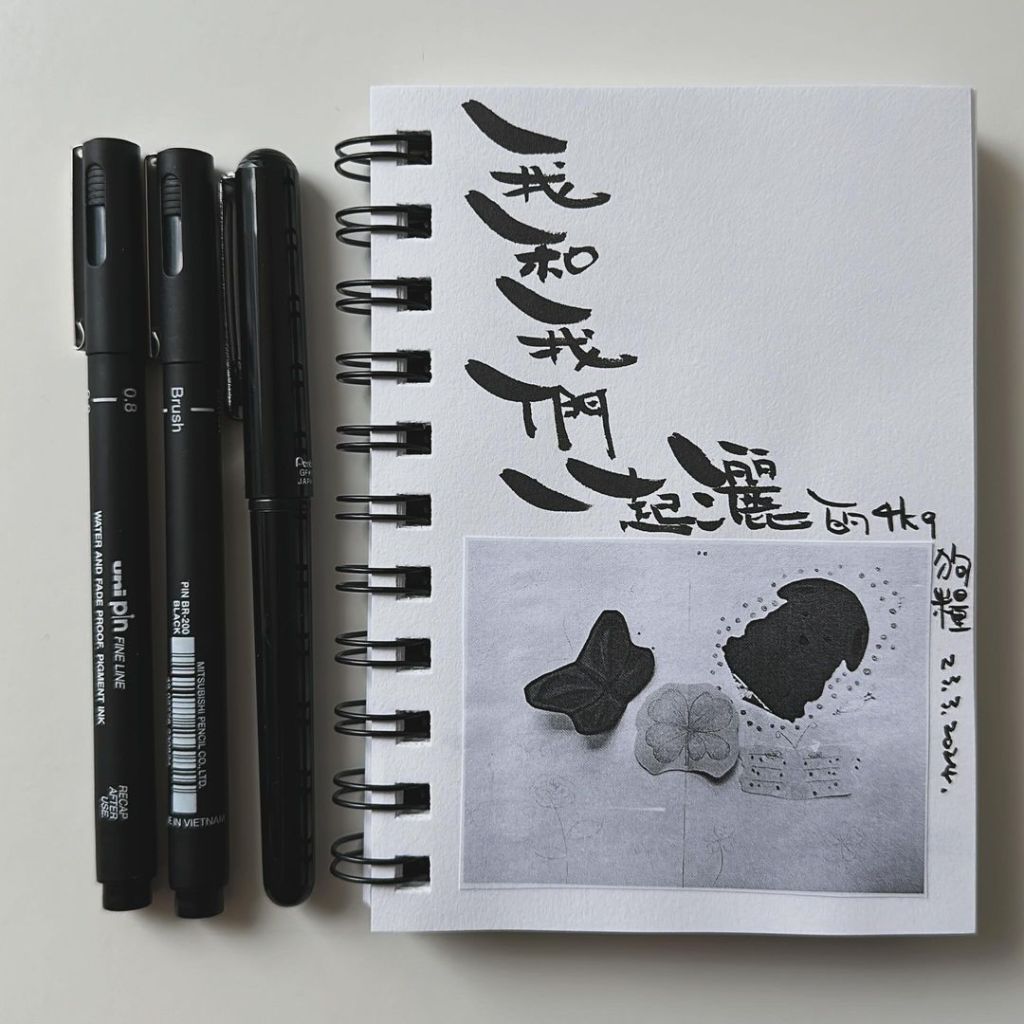 0.8
uni pin FINE LINE
WATER AND FADE PROOF, PIGMENT INK
RECAP
AFTER
USE
Brush
PIN BR-200
BLACK
MITSUBISHI PENCIL CO., LTD.
IN VIETNAM
我
和
我
起
麗
的 4kg
狗糧
23.3.2024.